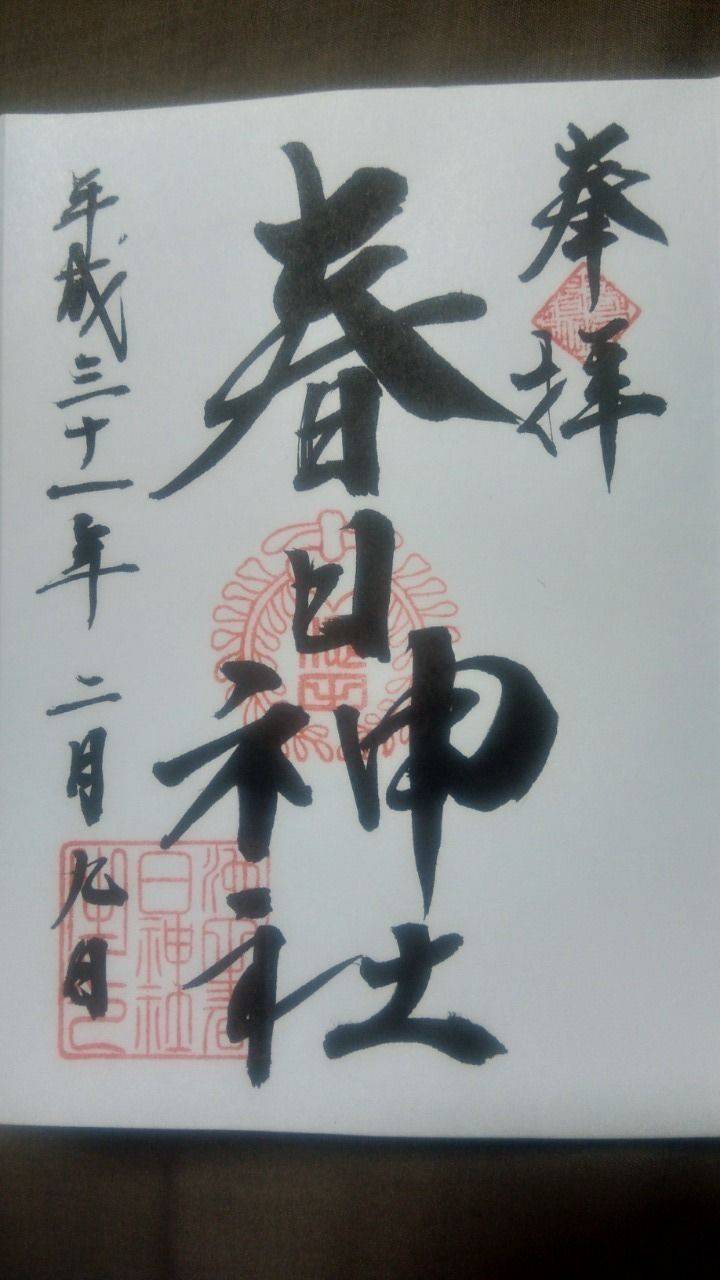 奉拝
春日神社
平成三十一年 二月 九日